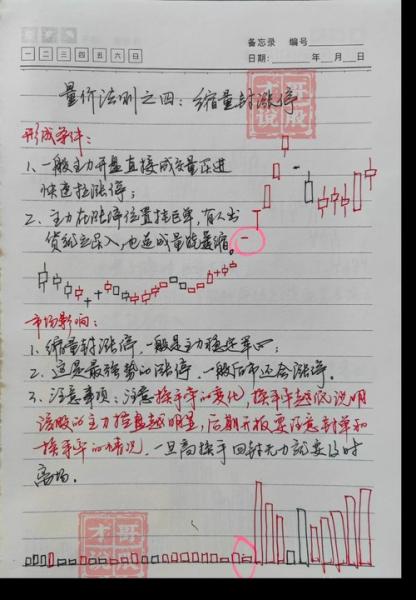 备忘录 编号
一 二 三 四 五 六 日
日期: 年 月 日
量价法则之四：缩量封涨停
才哥说股
形成条件：
1、一般主力开盘直接成交量跟进
快速拉涨停；
2、主力在涨停位置挂巨单，有人出
货就立马买入，也造成量能萎缩。
市场影响：
1、缩量封涨停，一般是主力稳定
2、这是最强势的涨停，一般后市还会涨停。
3、注意事项：注意换手率的变化，换手率越低说明
该股的主力控盘越明显，后期开板要注意封单和
换手率的情况，一旦高换手回封无力就要及时
离场。
才哥说股